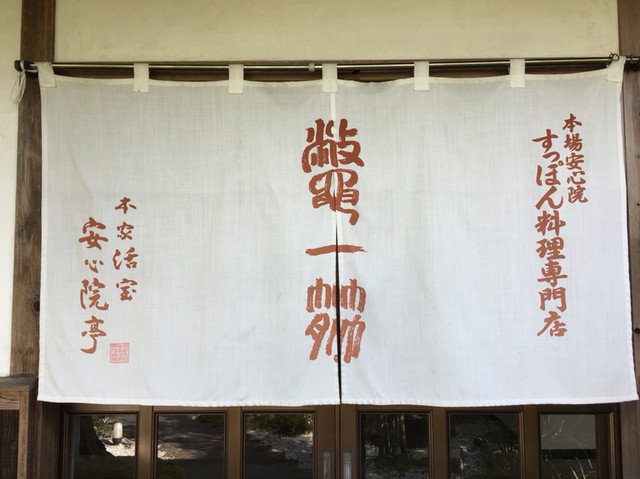 本場安心院
すっぽん料理専門店
鼈一
本家活宝
安心院亭